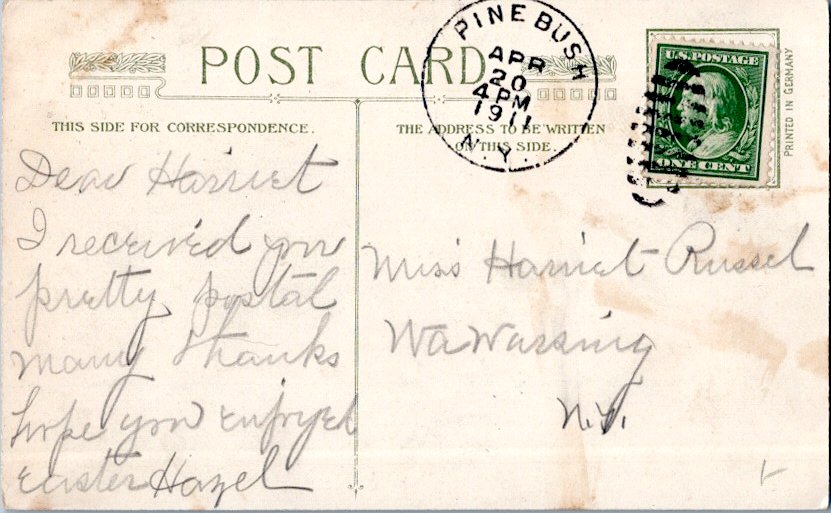 POST CARD
THIS SIDE FOR CORRESPONDENCE.
THE ADDRESS TO BE WRITTEN
ON THIS SIDE.
PINE BUSH
APR
20
4 PM
1911
N.Y.
U.S. POSTAGE
ONE CENT
PRINTED IN GERMANY
Dear Harriet
I received your
pretty postal
many thanks
hope you enjoyed
easter Hazel
Miss Harriet Russel
WaWarsing
N.Y.